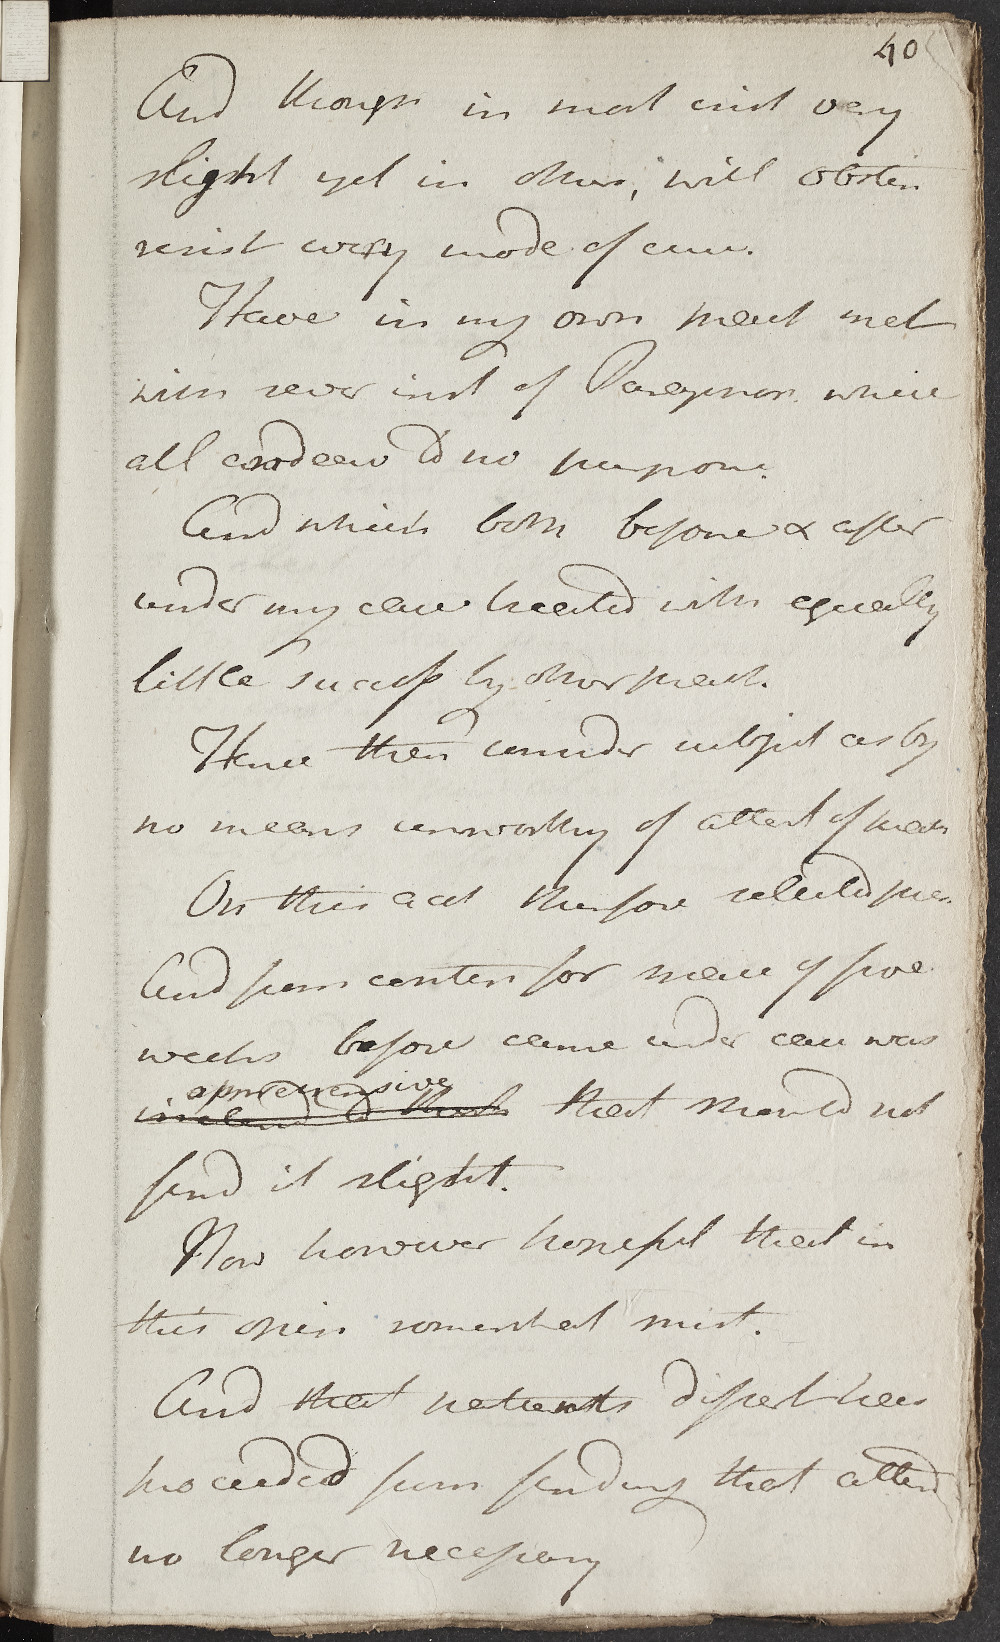 40
And though in most inst very
slight yet in others, will obstin
resist every mode of cure.
Have in my own pract met
with sever inst of where
all endeav to no purpose.
And which both before & after
under my care treated with equally
little success by other pract.
Hence then consider subject as by
no means unworthy of attent of
On this acct therefore selected
And from contin for space of five
weeks before came under care was
apprehensive
that should not
find it slight.
Now however hopeful that in
this opin somewhat mist.
And that patients disposit has
proceeded from finding that attend
no longer necessary